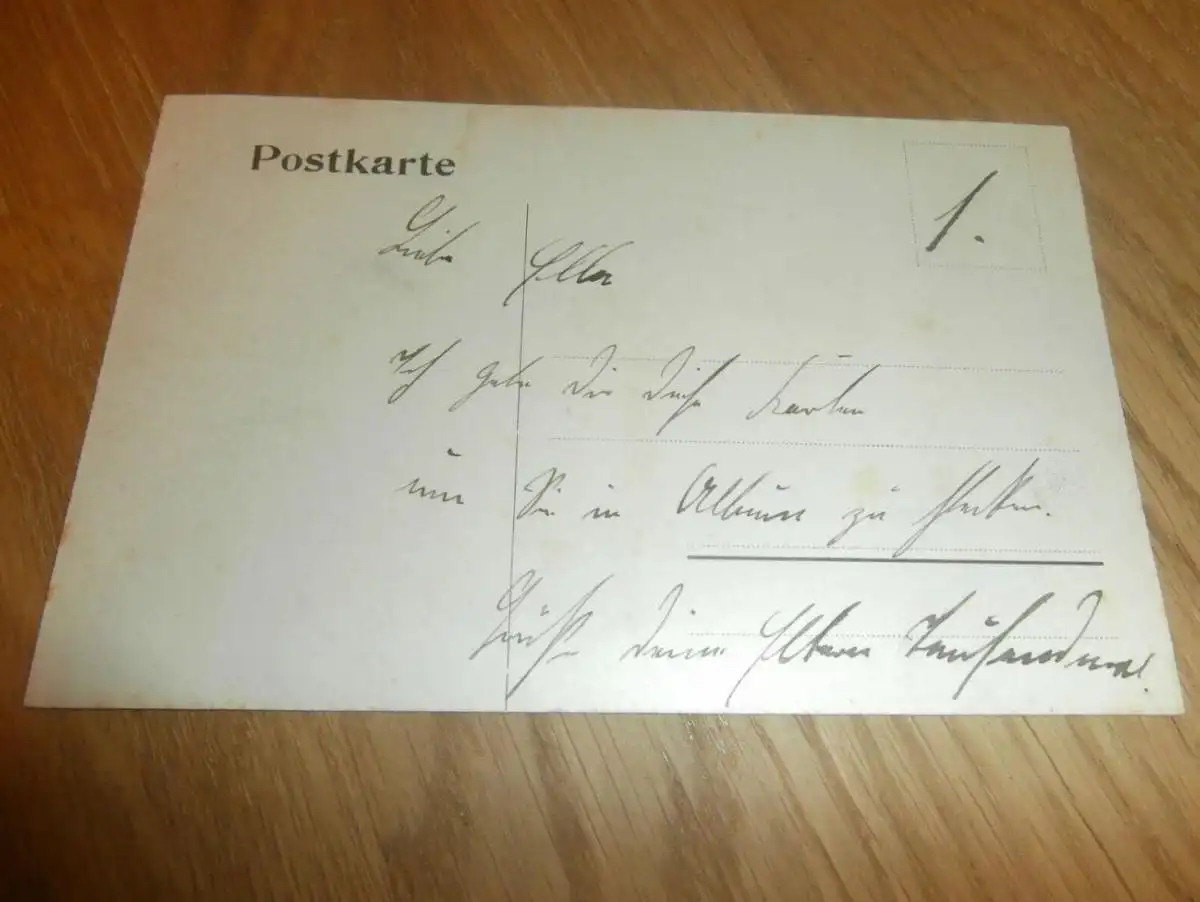 Postkarte
1.
Liebe Ella
Ich gebe Dir diese Karten
um Sie in Album zu stecken.
Grüße Deine Eltern Tausendmal